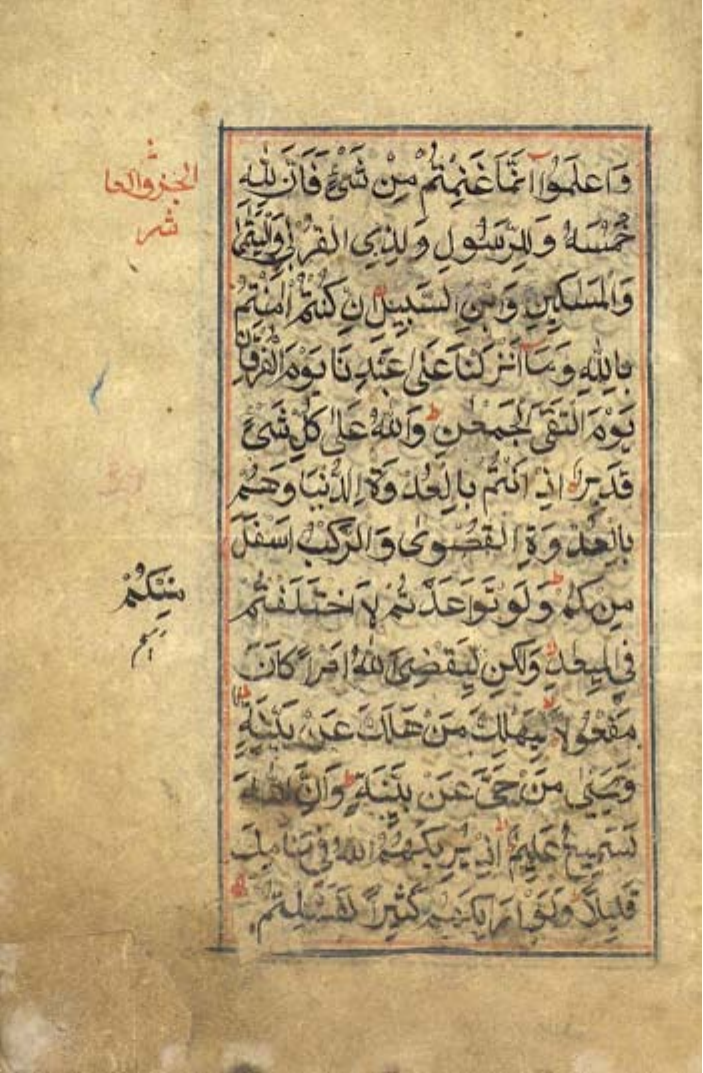 وَاعلَمُوا اَنَّمَا غَنِمْتُمْ مِنْ شَيْءٍ فَاَنَّ لِلّٰهِ
خُمُسَهُ وَلِلرَّسُولِ وَلِذِي القُرْبٰي وَاليَتٰمٰى
وَالمَسٰكِينِ وَابْنِ السَّبِيلِ اِنْ كُنْتُمْ اٰمَنْتُمْ
بِاللّٰهِ وَمَا اَنْزَلْنَا عَلٰى عَبْدِنَا يَوْمَ الفُرْقَانِ
يَوْمَ التَقَى الجَمْعٰنِ ط وَاللّٰهُ عَلٰى كُلِّ شَيْءٍ
قَدِيرٌ اِذْ اَنْتُمْ بِالعُدْوَةِ الدُّنْيَا وَهُمْ
بِالعُدْوَةِ القُصْوٰى وَالرَّكْبُ اَسْفَلَ
مِنكُمْ ط وَلَوْ تَوَاعَدْتُمْ لَاخْتَلَفْتُمْ
فِي المِيعٰدِ وَلٰكِنْ لِيَقْضِيَ اللّٰهُ اَمْرًا كَانَ
مَفْعُولًا لِيَهْلِكَ مَنْ هَلَكَ عَنْ بَيِّنَةٍ
وَيَحْيٰى مَنْ حَيَّ عَنْ بَيِّنَةٍ ط وَاِنَّ اللّٰهَ
لَسَمِيعٌ عَلِيمٌ اِذْ يُرِيكَهُمُ اللّٰهُ فِي مَنَامِكَ
قَلِيلًا وَلَوْ اَرَاكَهُمْ كَثِيرًا لَفَشِلْتُمْ
الجزو العا
شر